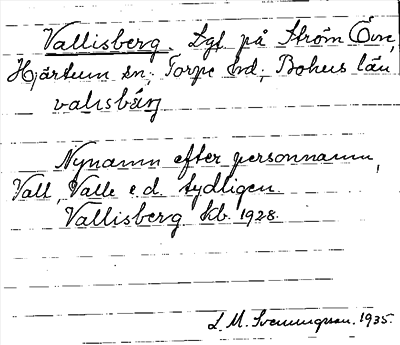 Vallisberg. Lgt på Ström Övre,
Hjärtum sn; Torpe hd; Bohus län
valısbárj
Nynamn efter personnamn,
Vall, Valle e.d. tydligen
Vallisberg kb. 1928.
S. M. Svenungsson. 1935.